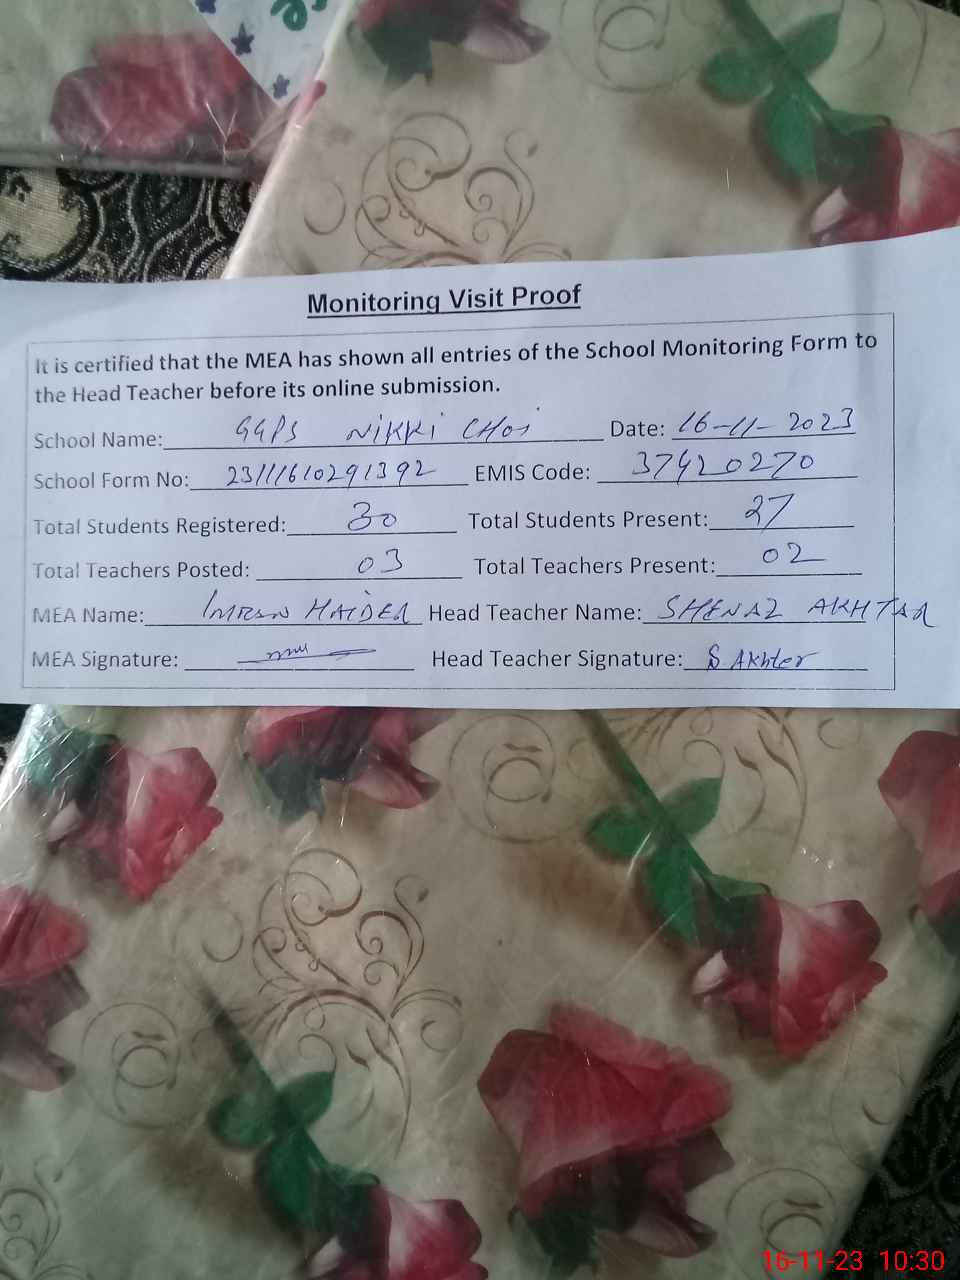 Monitoring Visit Proof
It is certified that the MEA has shown all entries of the School Monitoring Form to
the Head Teacher before its online submission.
School Name: GGPS NIKKI CHOI Date: 16-11-2023
School Form No: 23111610291392 EMIS Code: 37420270
Total Students Registered: 30 Total Students Present: 27
Total Teachers Posted: 03 Total Teachers Present: 02
MEA Name: IMRAN HAIDER Head Teacher Name: SHENAZ AKHTAR
MEA Signature: Head Teacher Signature: S. Akhter
16-11-23 10:30